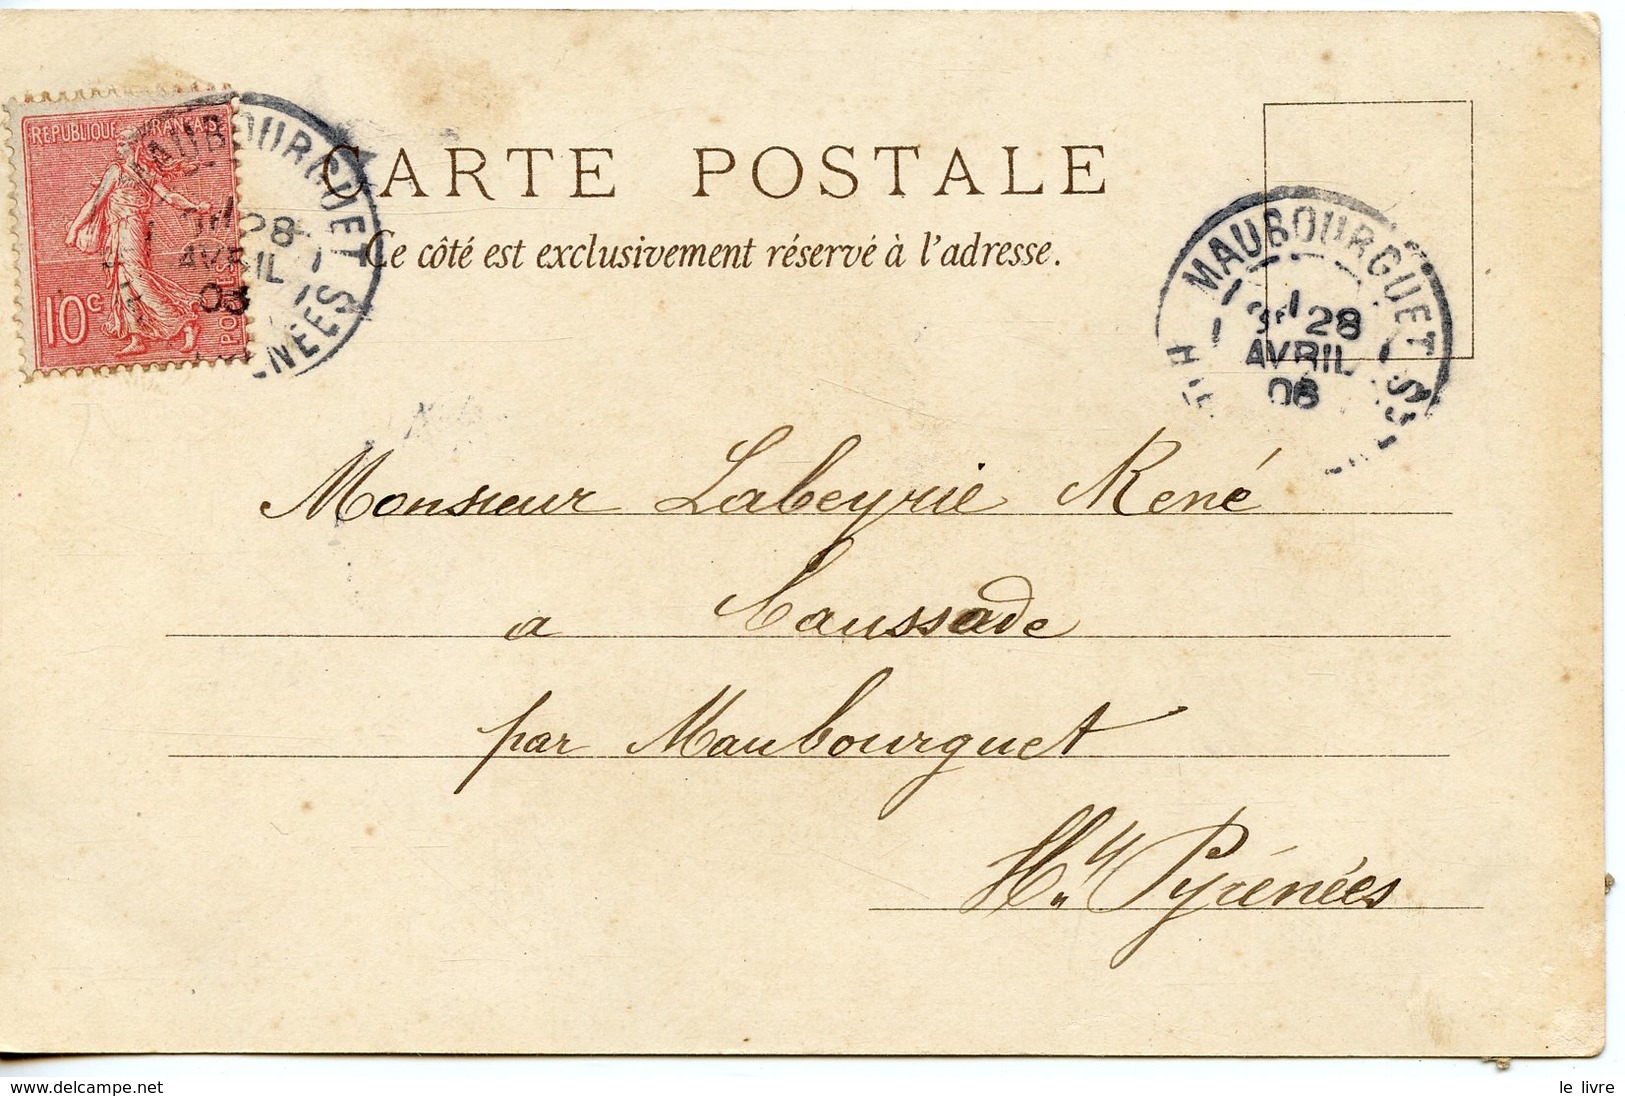 CARTE POSTALE
Ce côté est exclusivement réservé à l'adresse.
REPUBLIQUE FRANÇAISE
10c
POSTES
MAUBOURGUET
28
AVRIL
03
NÉES
MAUBOURGUET
28
AVRIL
Monsieur Labeyrie René
a Caussade
par Maubourguet
Htes Pyrénées
www.delcampe.net
le livre